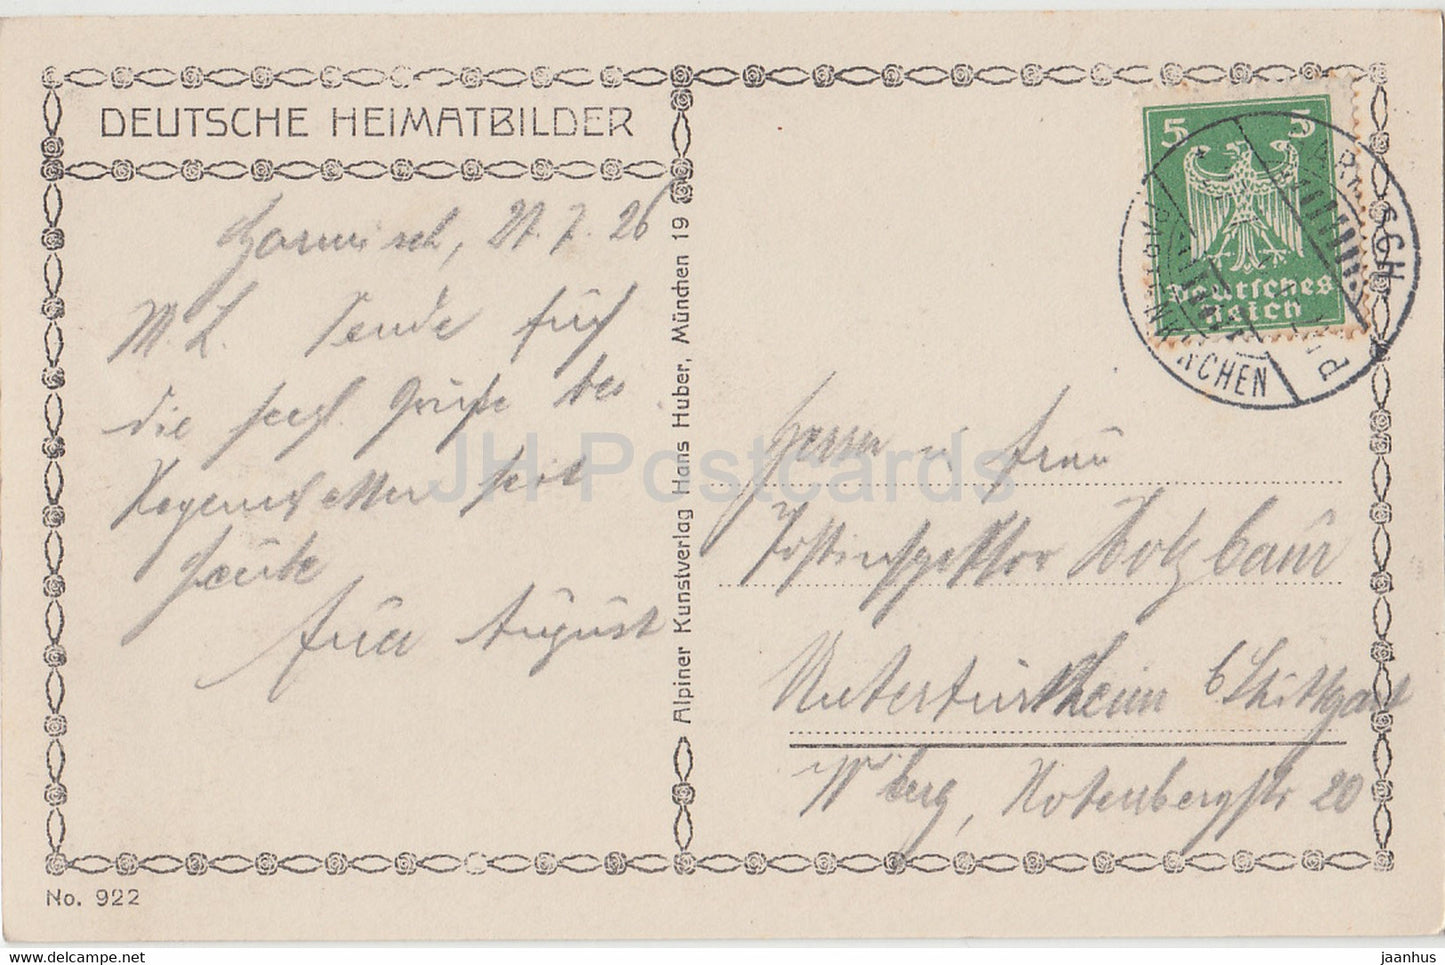 DEUTSCHE HEIMATBILDER
Garmisch, 27.7.26
M. L. Sende Euch
die herzl. Grüße bei
Regenwetter seit
heute
Euer August
Alpiner Kunstverlag Hans Huber, München 19
5 5
Deutsches
Reich
GARMISCH
PARTENKIRCHEN
Herrn u. Frau
Postinspektor Holzbaur
Untertürkheim b Stuttgart
W'berg, Rotenbergstr 20
No. 922
JH Postcards
delcampe.net
jaanhus